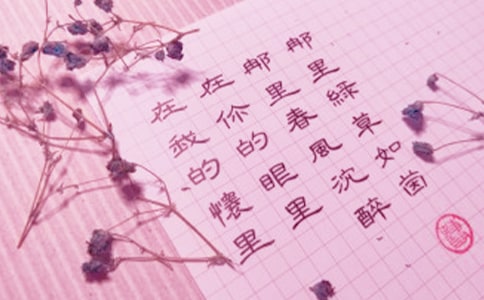 在我的懷里
在你的眼里
那里春風沈醉
那里綠草如茵